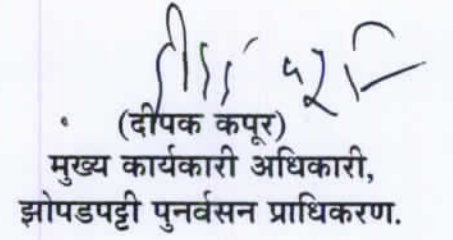 (दीपक कपूर)
मुख्य कार्यकारी अधिकारी,
झोपडपट्टी पुनर्वसन प्राधिकरण.